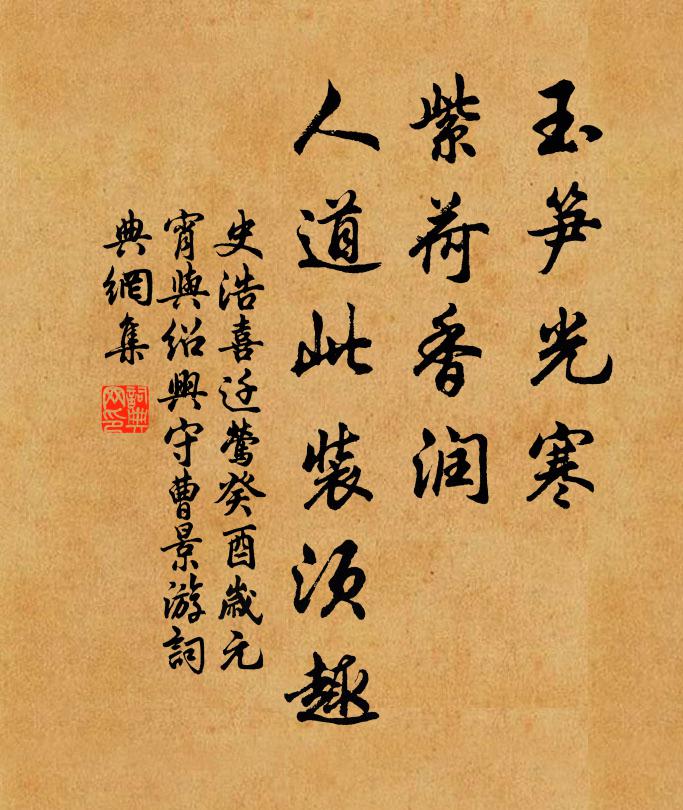 玉笋光寒
紫荷香润
人道此装须趣
史浩喜迁鶯癸酉歲元
宵與绍興守曹景游詞
典網集
詞典网印